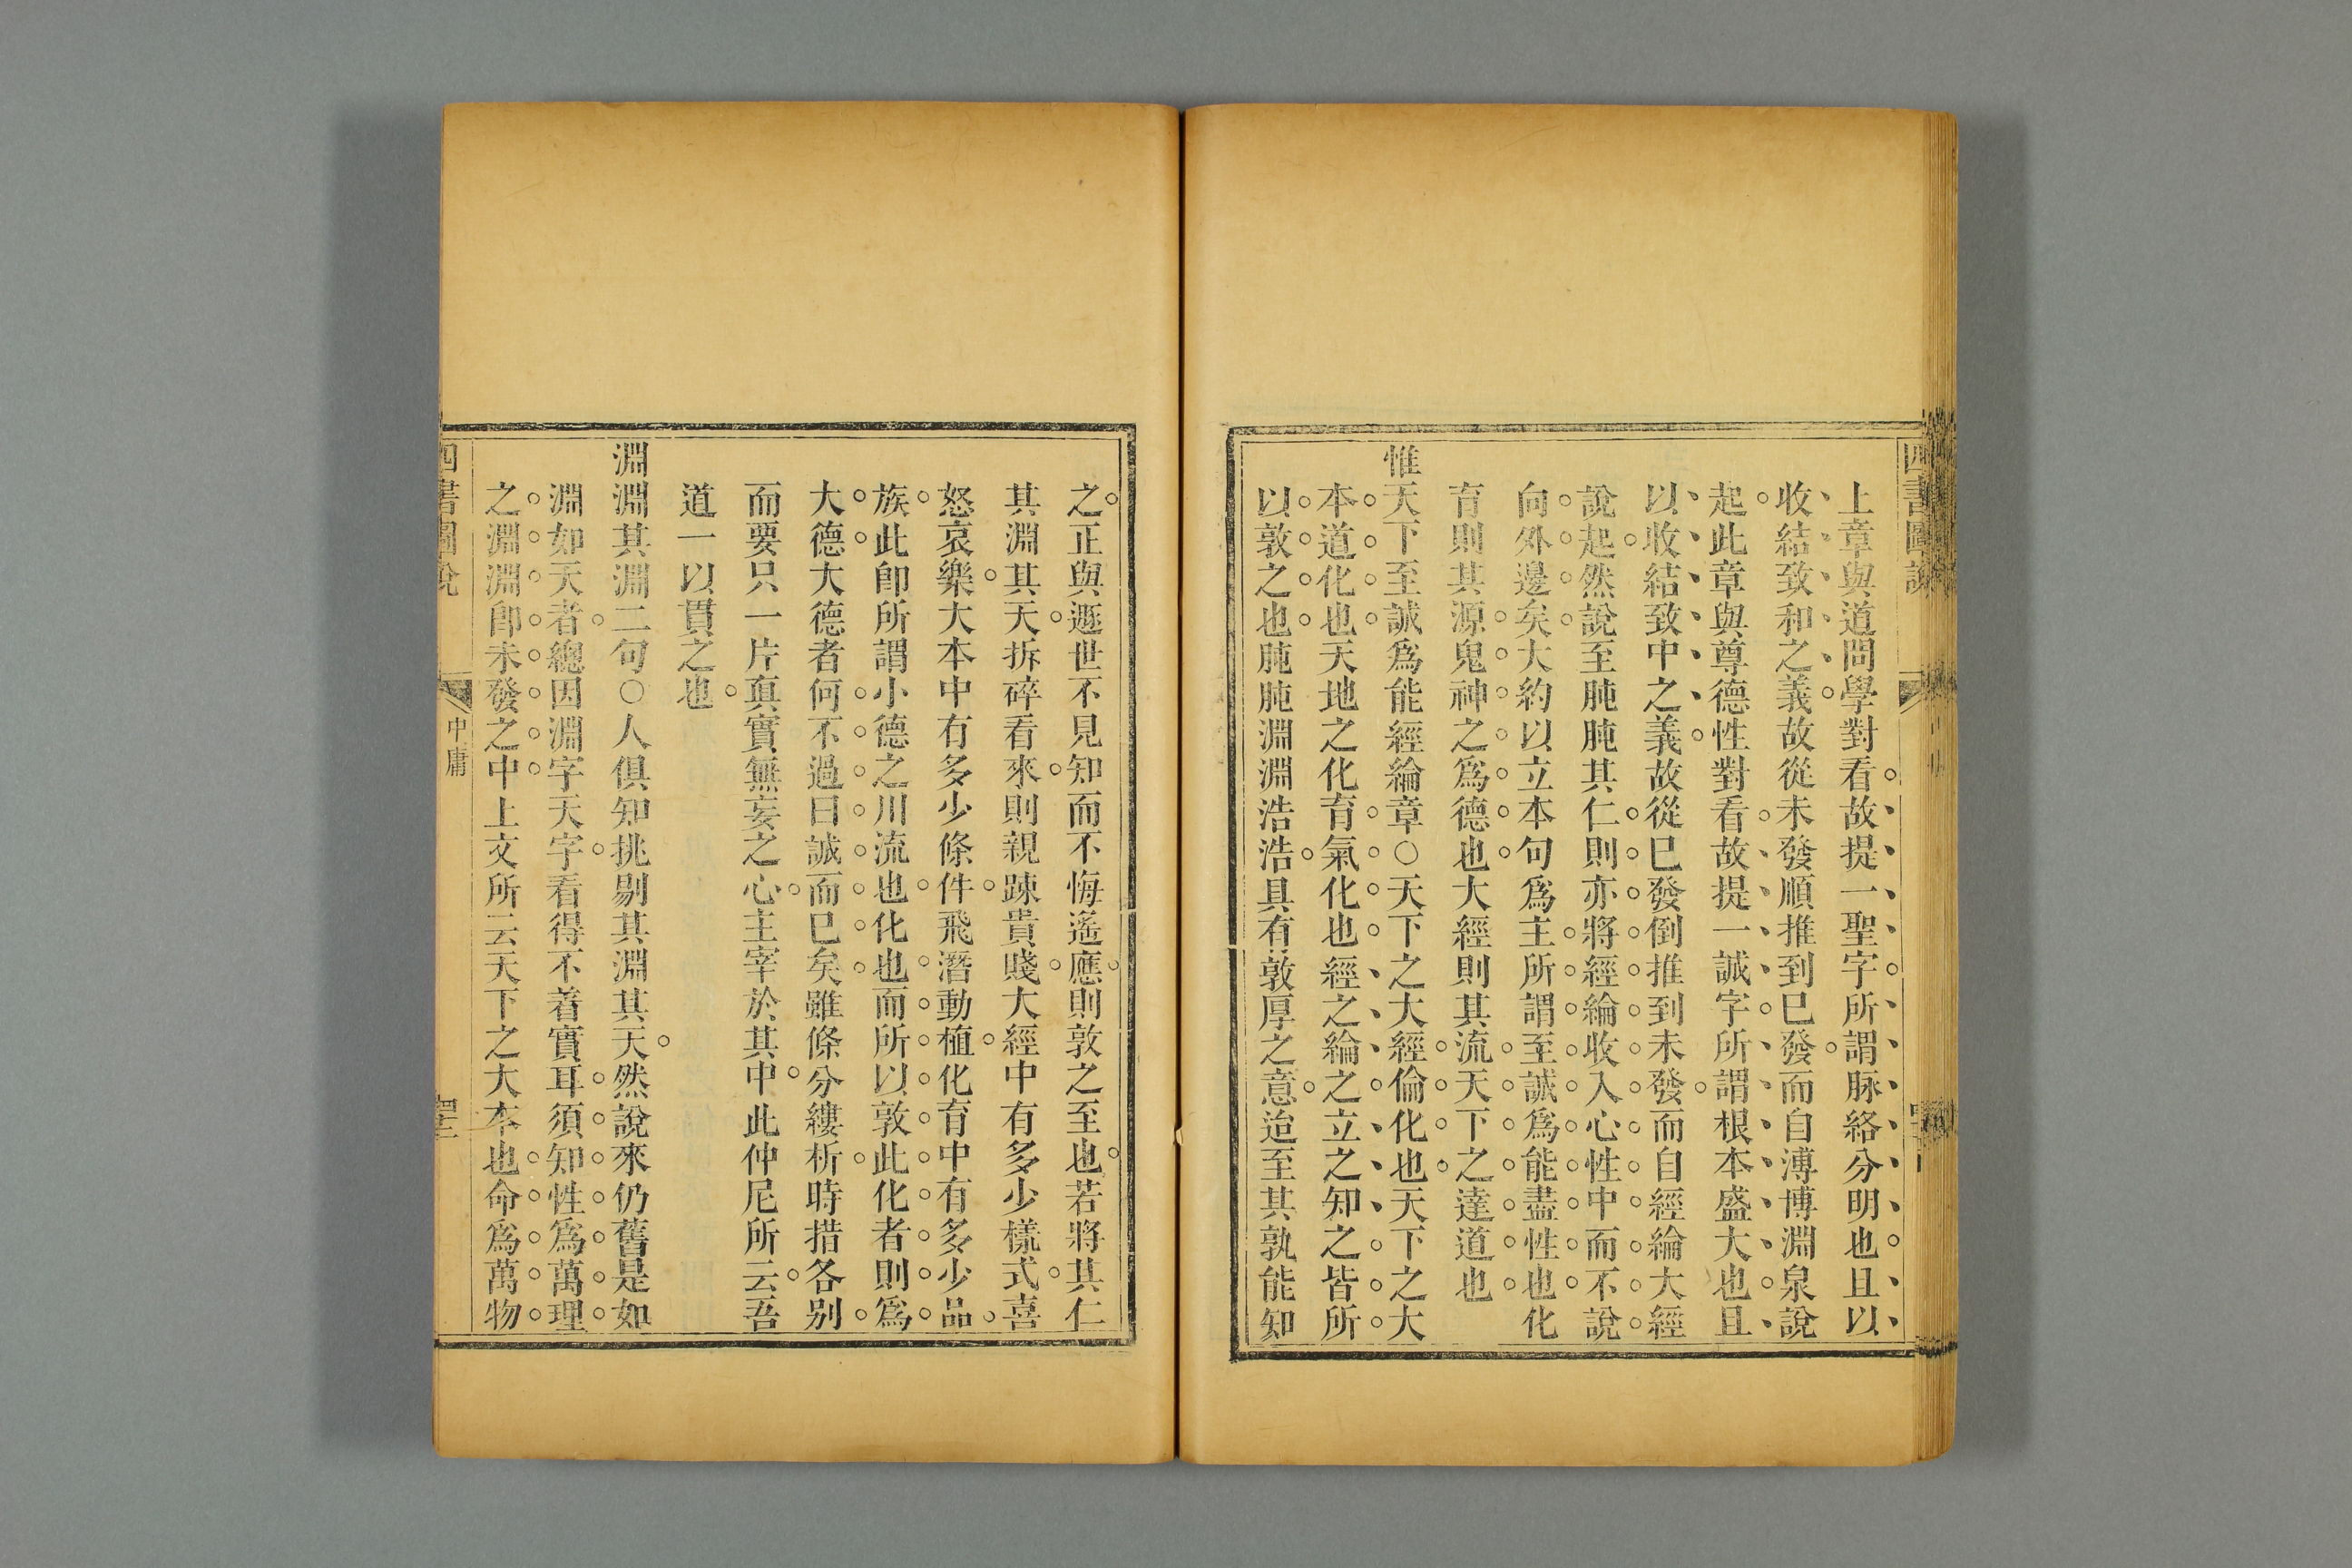 四書圖說
上章與道問學對看故提一聖字所謂脉絡分明也且以
收結致和之義故從未發順推到已發而自溥博淵泉說
起此章與尊德性對看故提一誠字所謂根本盛大也且
以收結致中之義故從已發倒推到未發而自經綸大經
說起然說至肫肫其仁則亦將經綸收入心性中而不說
向外邊矣大約以立本句爲主所謂至誠爲能盡性也化
育則其源鬼神之爲德也大經則其流天下之達道也
惟天下至誠爲能經綸章○天下之大經倫化也天下之大
本道化也天地之化育氣化也經之綸之立之知之皆所
以敦之也肫肫淵淵浩浩具有敦厚之意迨至其孰能知
之正與遯世不見知而不悔遙應則敦之至也若將其仁
其淵其天拆碎看來則親踈貴賤大經中有多少樣式喜
怒哀樂大本中有多少條件飛潛動植化育中有多少品
族此卽所謂小德之川流也化也而所以敦此化者則爲
大德大德者何不過曰誠而已矣雖條分縷析時措各别
而要只一片眞實無妄之心主宰於其中此仲尼所云吾
道一以貫之也
淵淵其淵二句○人俱知挑剔其淵其天然說來仍舊是如
淵如天者總因淵字天字看得不着實耳須知性爲萬理
之淵淵卽未發之中上文所云天下之大本也命爲萬物
四書圖說
中庸